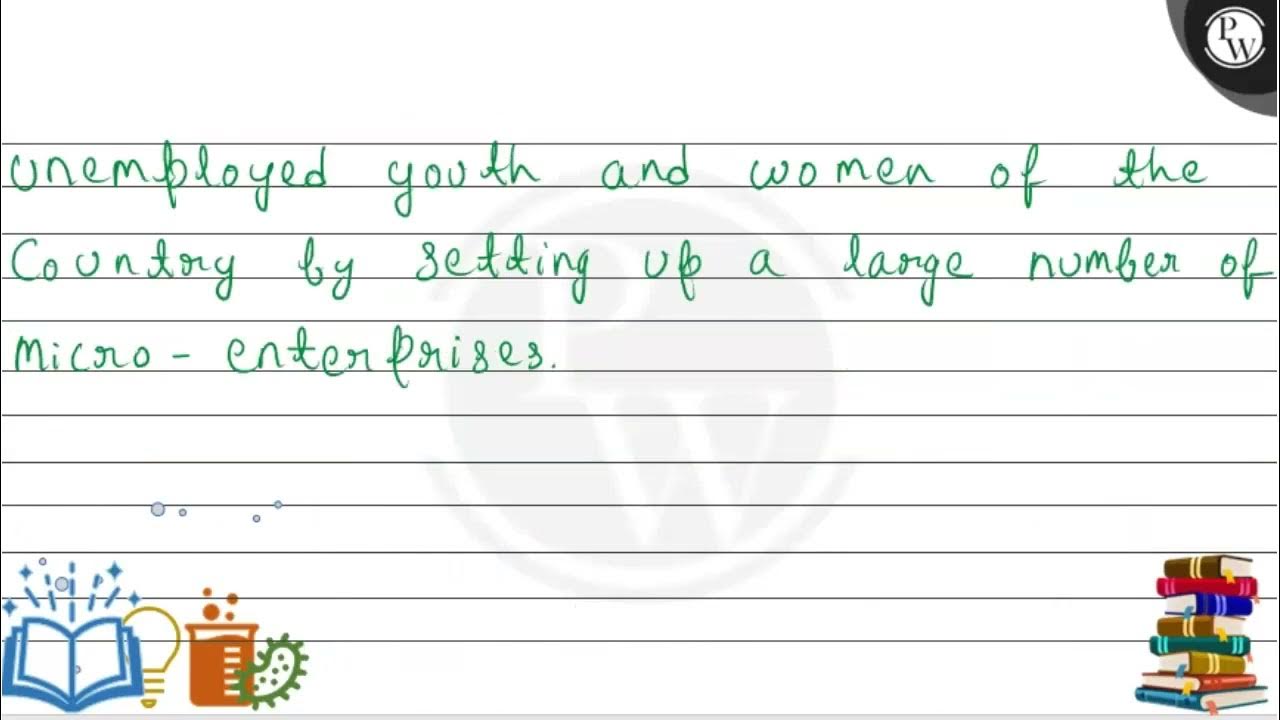 PW
unemployed youth and women of the
Country by setting up a large number of
micro - enterprises.
PW